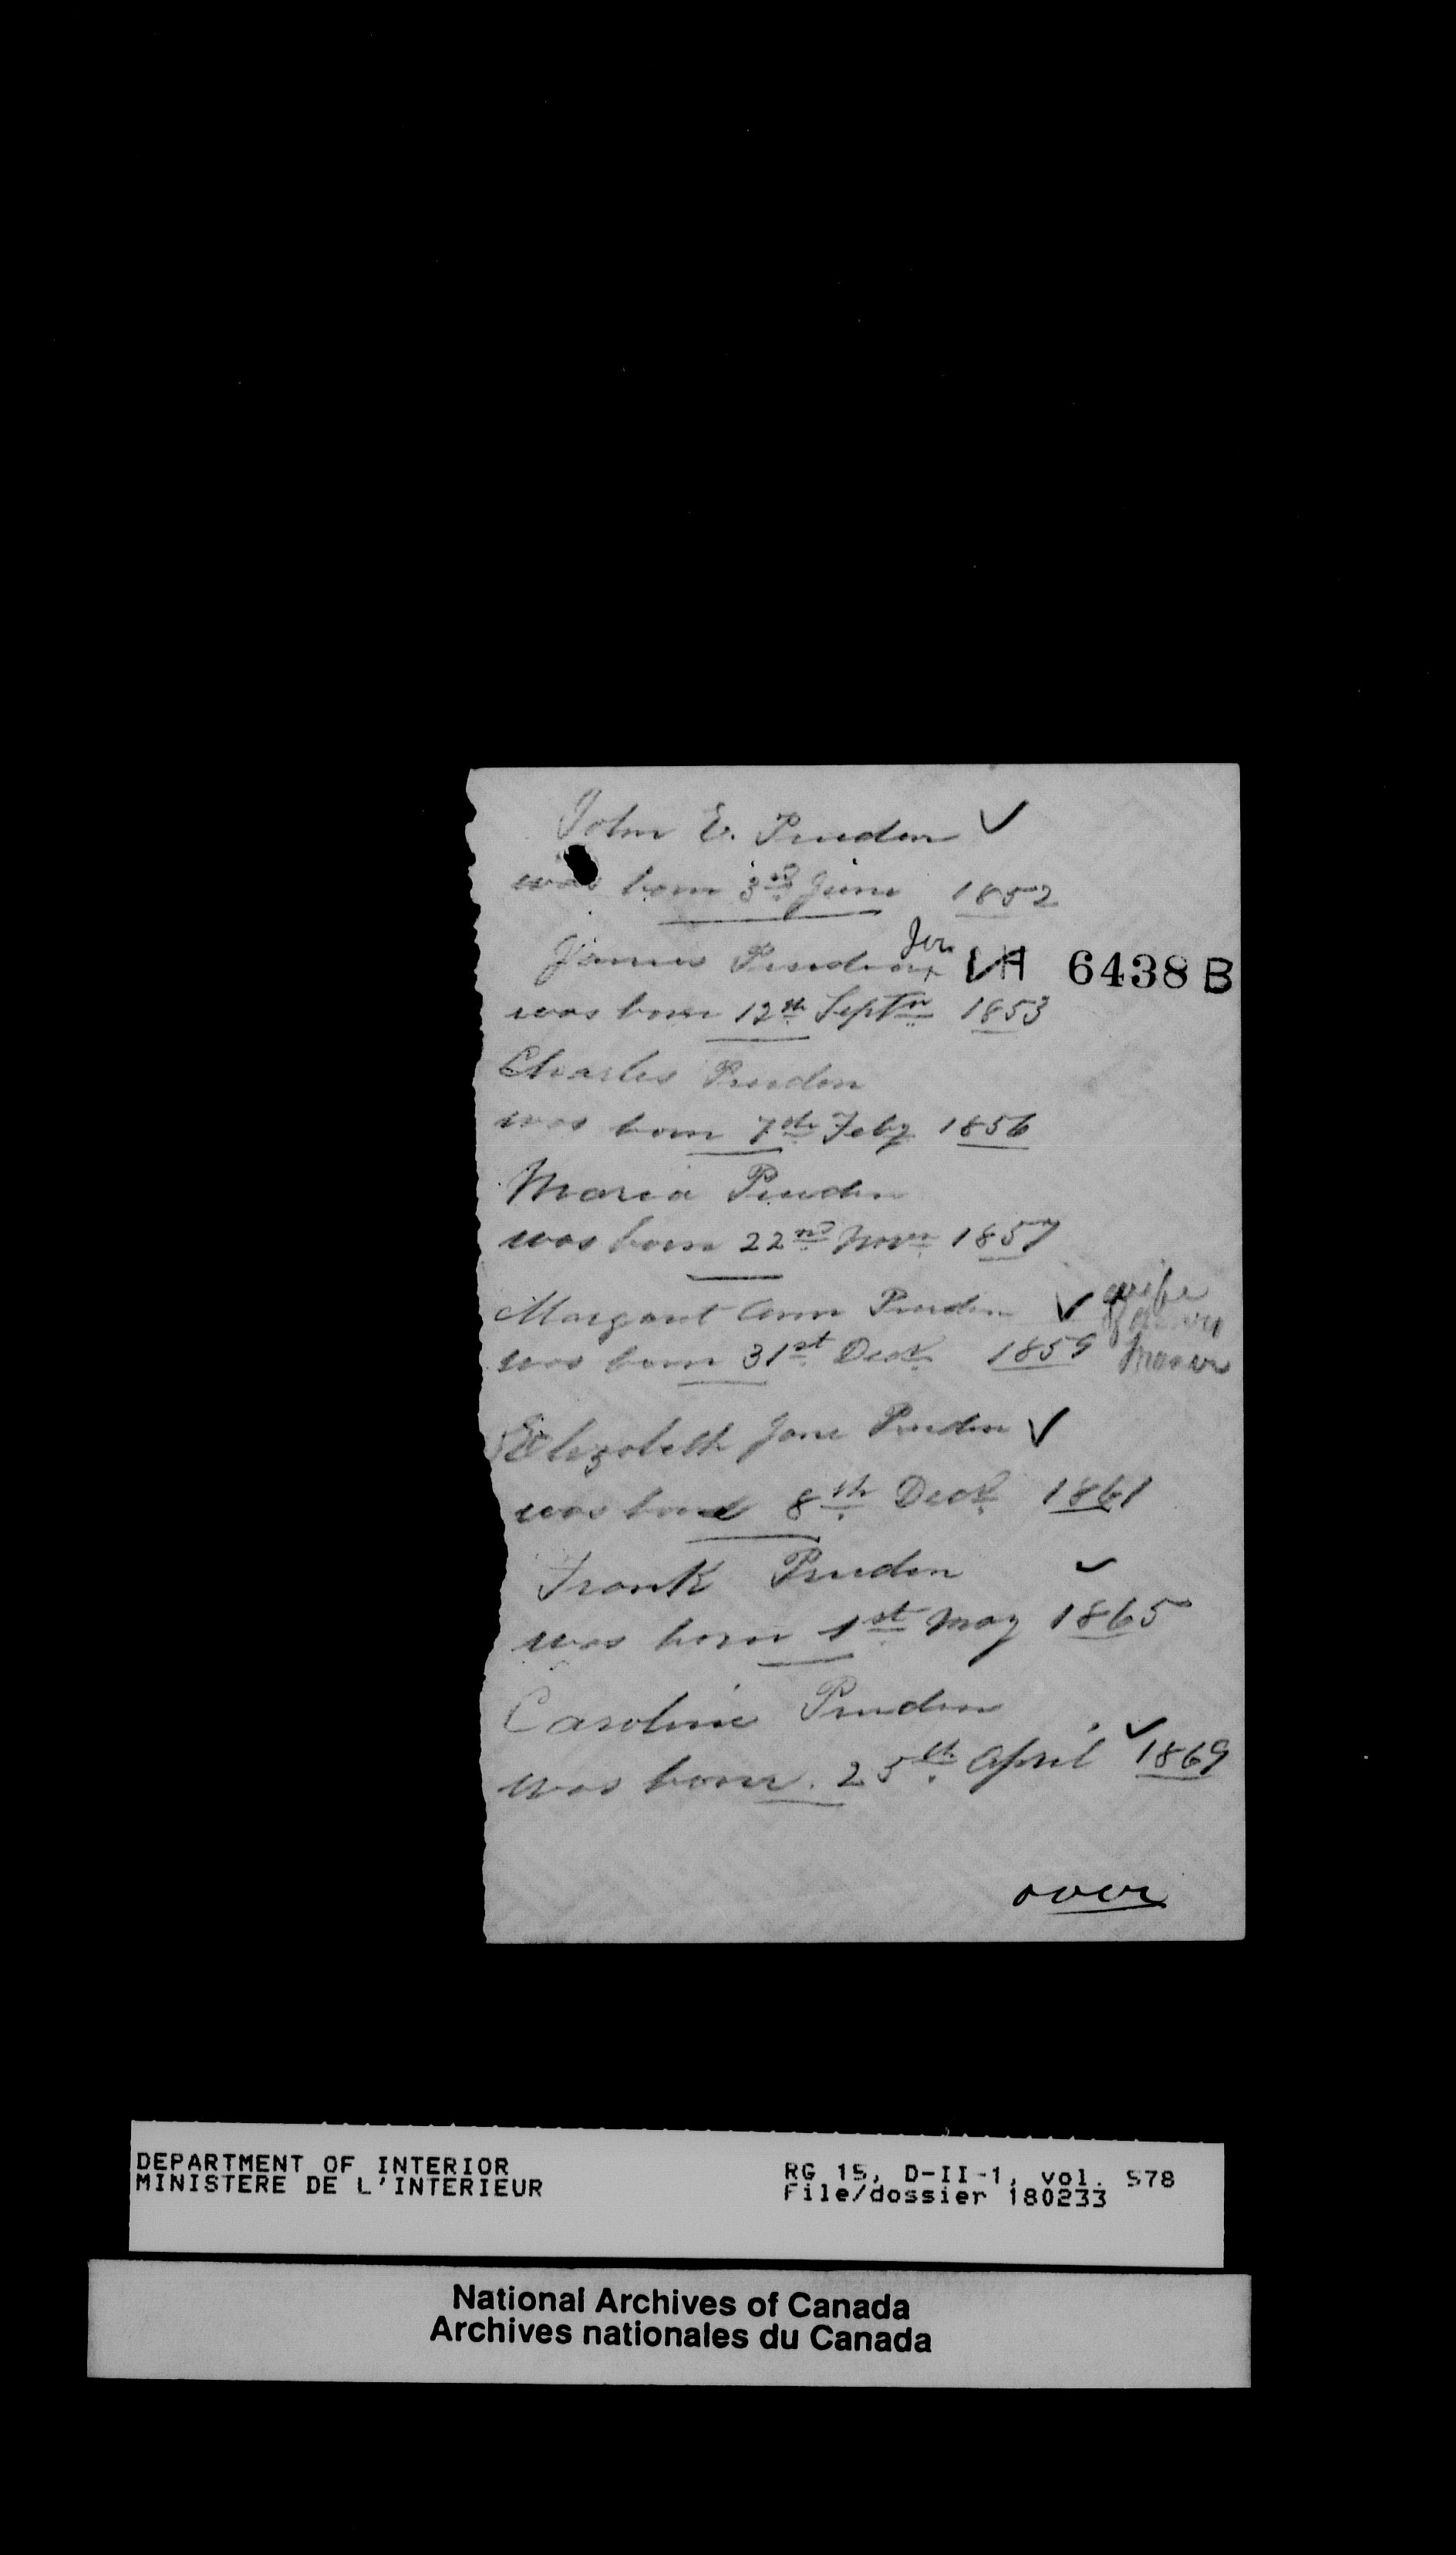 John E. Pruden ✓
was born 3rd June 1852
James Pruden Jnr ✓ H 6438 B
was born 12th Septr 1853
Charles Pruden
was born 7th Feby 1856
Maria Pruden
was born 22nd Novr 1857
Margaret Ann Pruden ✓ wife
was born 31st Decr 1859
Elizabeth Jane Pruden ✓
was born 8th Decr 1861
Frank Pruden ✓
was born 1st May 1865
Caroline Pruden
was born. 25th April ✓ 1869
over
DEPARTMENT OF INTERIOR
MINISTERE DE L'INTERIEUR
RG 15, D-II-1, vol. 578
File/dossier 180233
National Archives of Canada
Archives nationales du Canada